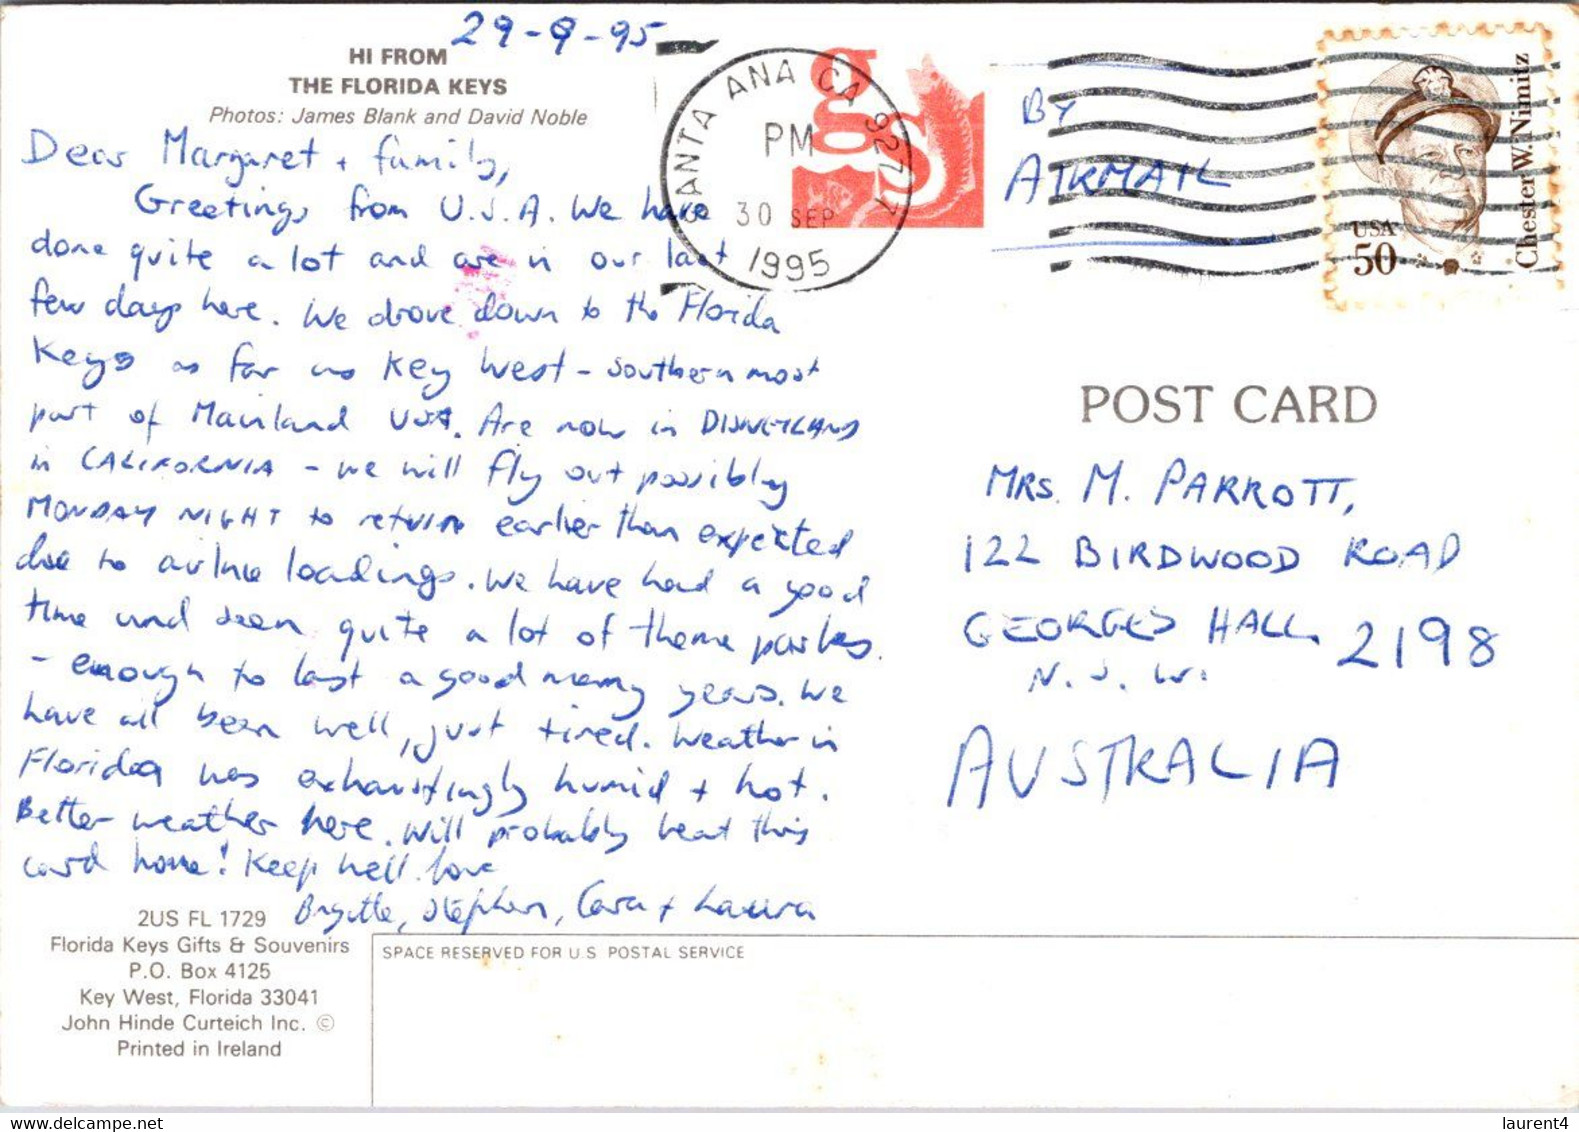 29-9-95
HI FROM
THE FLORIDA KEYS
Photos: James Blank and David Noble
Dear Margaret + family,
Greetings from U.S.A. We have
done quite a lot and are in our last
few days here. We drove down to the Florida
Keys as far as Key West - southern most
part of Mainland USA. Are now in DISNEYLAND
in CALIFORNIA - we will fly out possibly
MONDAY NIGHT to return earlier than expected
due to airline loadings. We have had a good
time and seen quite a lot of theme parks
- enough to last a good many years. We
have all been well, just tired. Weather in
Florida was exhaustingly humid + hot.
Better weather here. Will probably beat this
card home! Keep well. love
Brigitte, Stephen, Cara + Laura
2US FL 1729
Florida Keys Gifts & Souvenirs
P.O. Box 4125
Key West, Florida 33041
John Hinde Curteich Inc. ©
Printed in Ireland
SANTA ANA CA 927
PM
30 SEP
1995
BY
AIRMAIL
USA
50
Chester W. Nimitz
POST CARD
MRS. M. PARROTT,
122 BIRDWOOD ROAD
GEORGES HALL 2198
N.S.W.
AUSTRALIA
SPACE RESERVED FOR U.S. POSTAL SERVICE
delcampe.net
laurent4